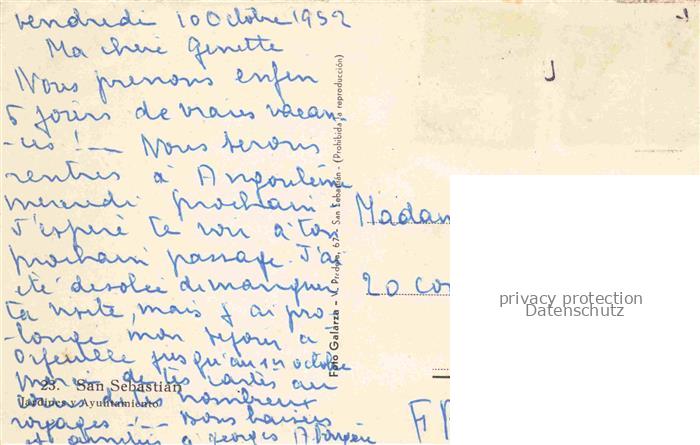 vendredi 10 Octobre 1952
Ma chère Ginette
Nous prenons enfin
5 jours de vraies vacan-
-ces ! — Nous serons
rentrés à Angoulême
mercredi prochain
J'espère te voir à ton
prochain passage. J'ai
été désolée de manquer
ta visite, mais j'ai pro-
-longé mon séjour à
jusqu'au 1er octobre
Merci de tes cartes au
cours de nombreux
voyages ! — Bons baisers
et amitiés à Georges
23. San Sebastián
Jardines y Ayuntamiento
Foto Galarza - V. Pradera, 67 - San Sebastián - (Prohibida la reproducción)
Madam
20 co
F
privacy protection
Datenschutz